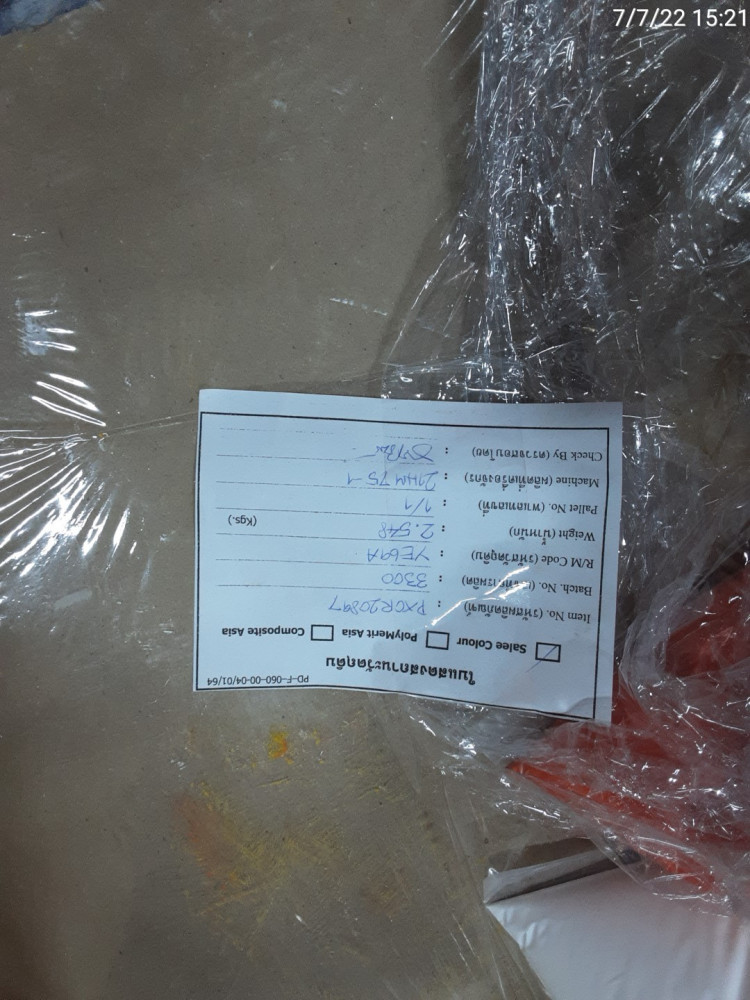 7/7/22 15:21
PD-F-060-00-04/01/64
ใบแสดงสถานะวัตถุดิบ
Salee Colour PolyMerit Asia Composite Asia
Item No. (รหัสผลิตภัณฑ์) : PXGR20897
Batch. No. (เลขที่การผลิต) : 3300
R/M Code (รหัสวัตถุดิบ) : YE69A
Weight (น้ำหนัก) : 2.548 (Kgs.)
Pallet No. (พาเลทเลขที่) : 1/1
Machine (ผลิตที่เครื่องจักร) : 21HM 75-1
Check By (ตรวจสอบโดย) :